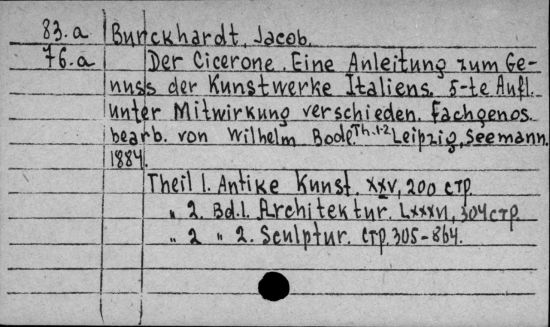 83.a Burckhardt, Jacob.
76.a Der Cicerone. Eine Anleitung zum Ge-
nuss der Kunstwerke Italiens. 5-te Aufl.
unter Mitwirkung verschieden. Fachgenos.
bearb. von Wilhelm Bode. Th. 1-2 Leipzig, Seemann.
1884.
Theil 1. Antike Kunst. XXV, 200 стр.
„ 2. Bd.1. Architektur. LXXXVI, 304 стр.
„ 2 „ 2. Sculptur. стр. 305-864.